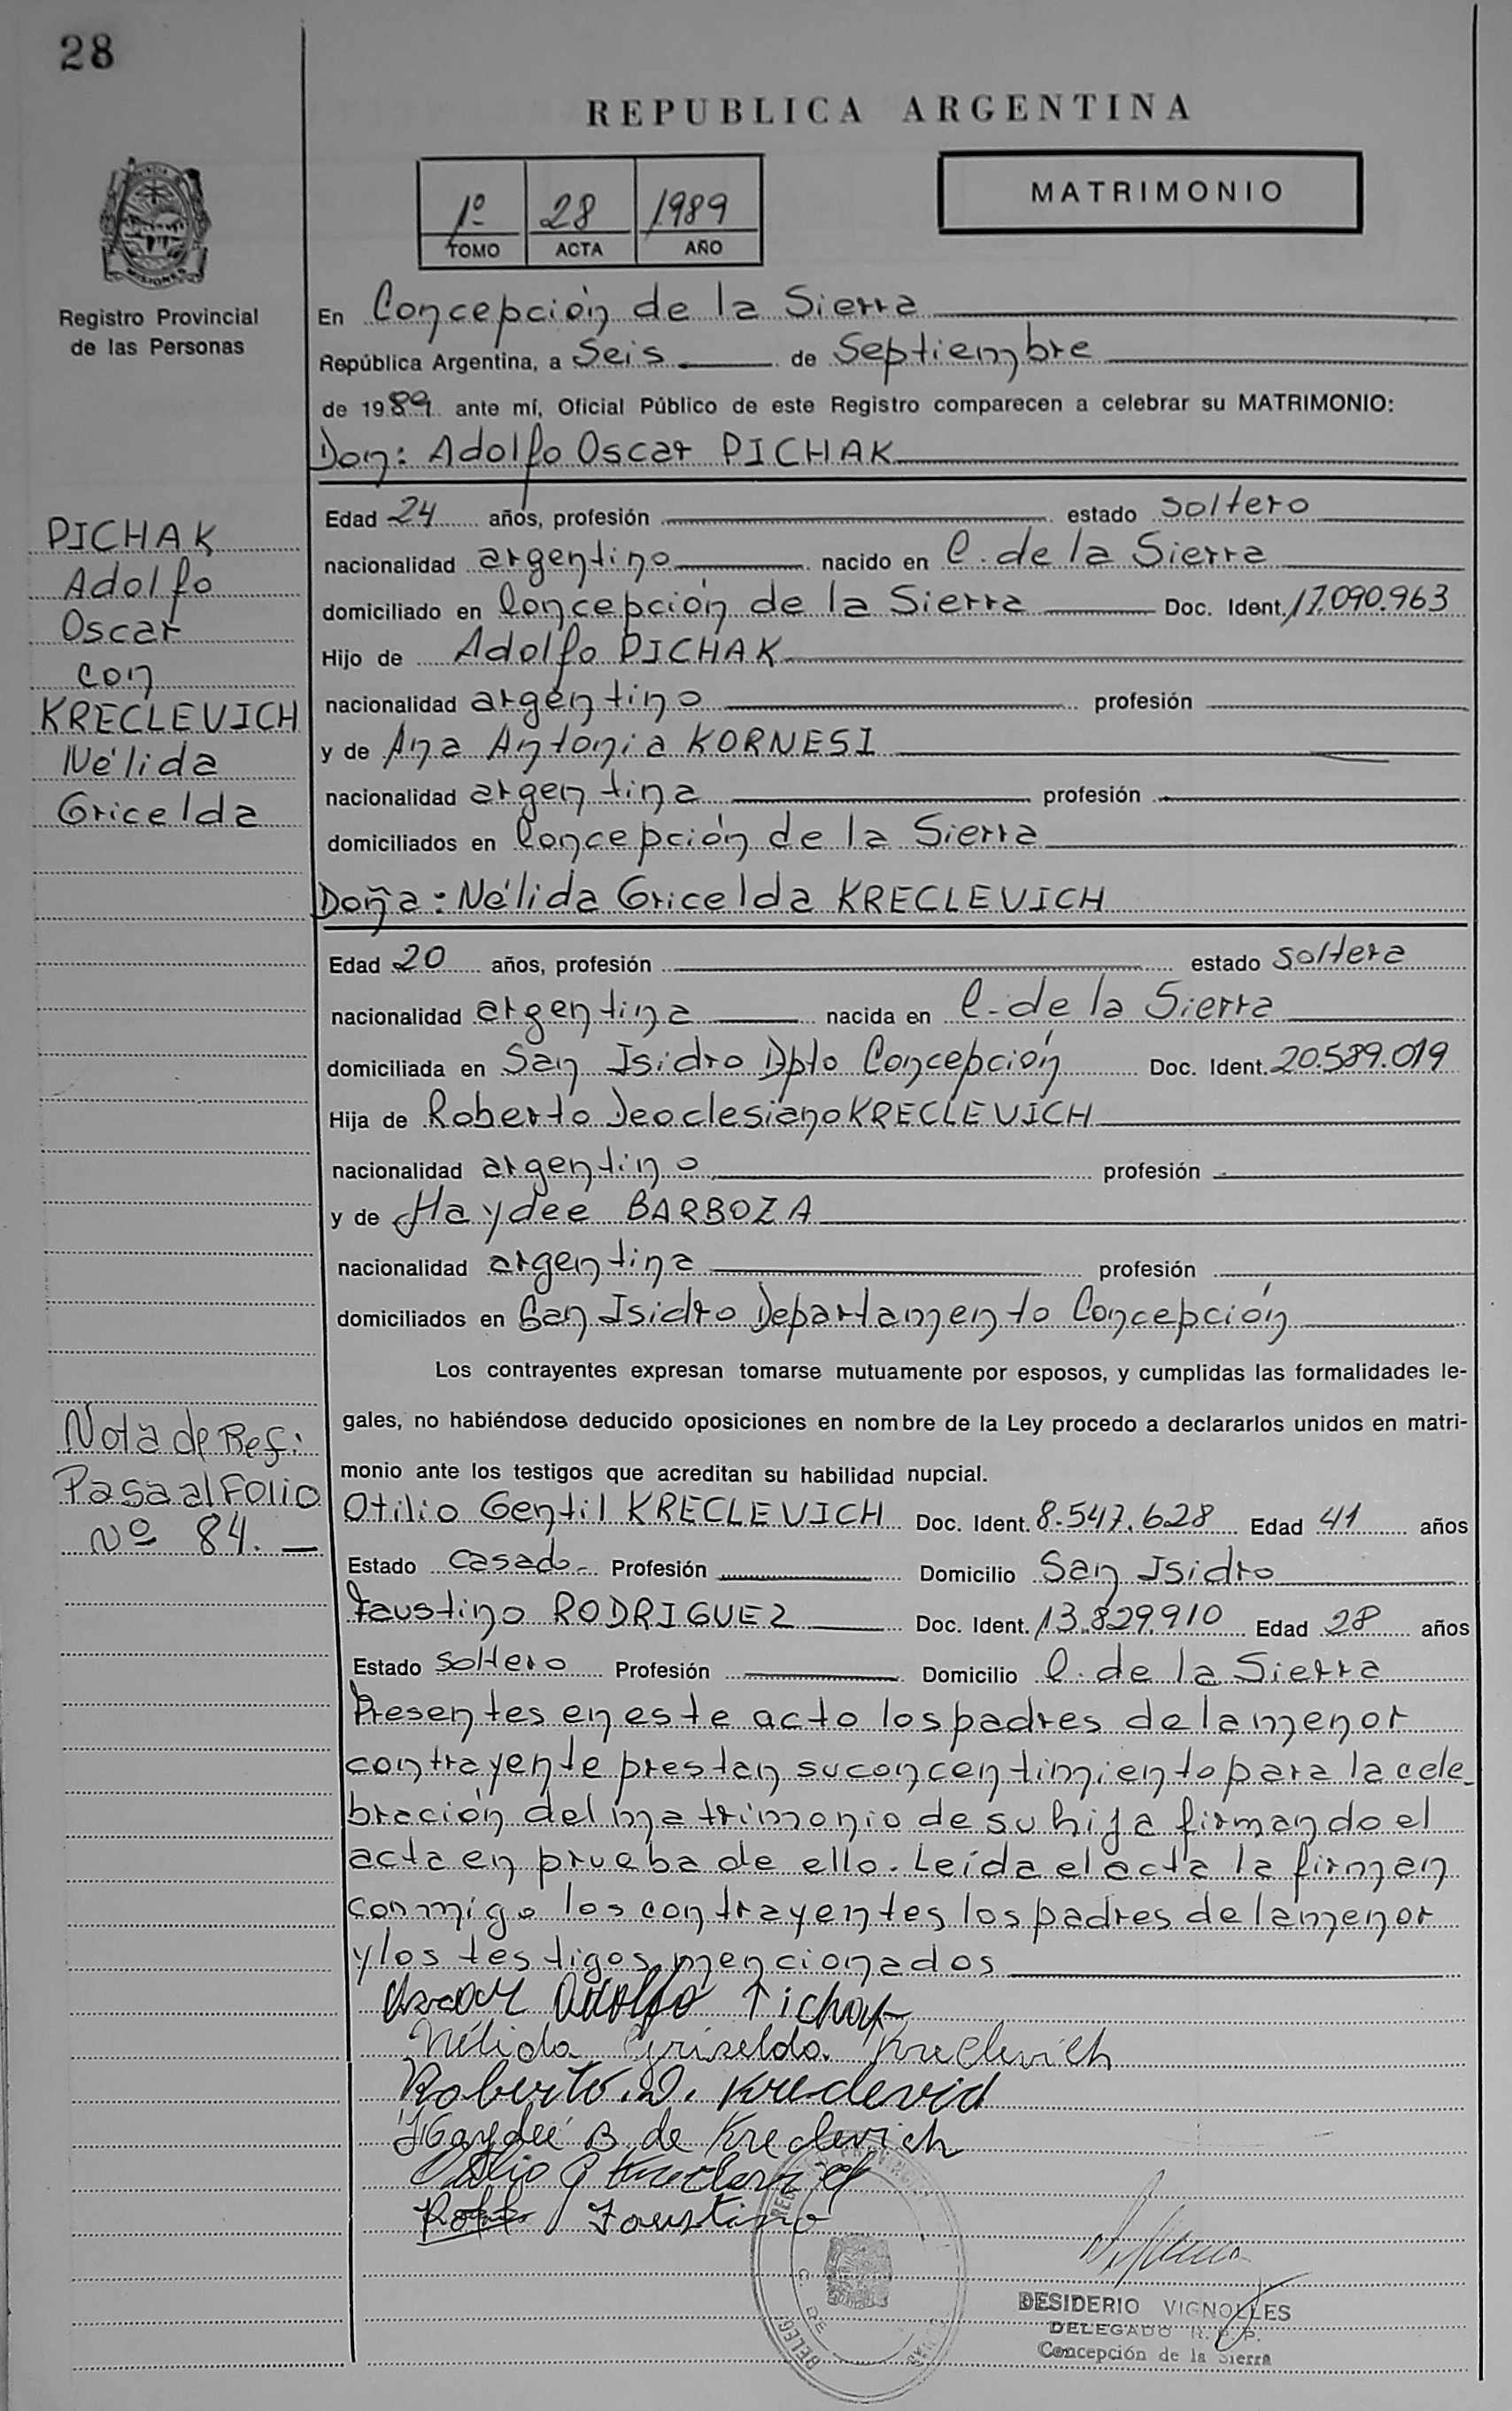 28
REPUBLICA ARGENTINA
1º 28 1989
TOMO ACTA AÑO
MATRIMONIO
MISIONES
Registro Provincial
de las Personas
En Concepción de la Sierra
República Argentina, a Seis de Septiembre
de 1989 ante mí, Oficial Público de este Registro comparecen a celebrar su MATRIMONIO:
Don: Adolfo Oscar PICHAK
Edad 24 años, profesión estado soltero
nacionalidad argentino nacido en C. de la Sierra
domiciliado en Concepción de la Sierra Doc. Ident. 17.090.963
Hijo de Adolfo PICHAK
nacionalidad argentino profesión
y de Ana Antonia KORNESI
nacionalidad argentina profesión
domiciliados en Concepción de la Sierra
Doña: Nélida Gricelda KRECLEVICH
Edad 20 años, profesión estado soltera
nacionalidad argentina nacida en C. de la Sierra
domiciliada en San Isidro Dpto Concepción Doc. Ident. 20.589.019
Hija de Roberto Deoclesiano KRECLEVICH
nacionalidad argentino profesión
y de Haydee BARBOZA
nacionalidad argentina profesión
domiciliados en San Isidro Departamento Concepción
Los contrayentes expresan tomarse mutuamente por esposos, y cumplidas las formalidades le-
gales, no habiéndose deducido oposiciones en nombre de la Ley procedo a declararlos unidos en matri-
monio ante los testigos que acreditan su habilidad nupcial.
Otilio Gentil KRECLEVICH Doc. Ident. 8.547.628 Edad 41 años
Estado casado Profesión Domicilio San Isidro
Faustino RODRIGUEZ Doc. Ident. 13.829.910 Edad 28 años
Estado soltero Profesión Domicilio C. de la Sierra
Presentes en este acto los padres de la menor
contrayente prestan su concentimiento para la cele-
bración del matrimonio de su hija firmando el
acta en prueba de ello. Leída el acta la firman
conmigo los contrayentes los padres de la menor
y los testigos mencionados
PICHAK
Adolfo
Oscar
con
KRECLEVICH
Nélida
Gricelda
Nota de Ref:
Pasa al Folio
Nº 84.
Oscar Adolfo Pichak
Nélida Griselda Kreclevich
Roberto D. Kreclevich
Haydeé B. de Kreclevich
Otilio G Kreclevich
Faustino
DESIDERIO VIGNOLLES
DELEGADO R. P. P.
Concepción de la Sierra